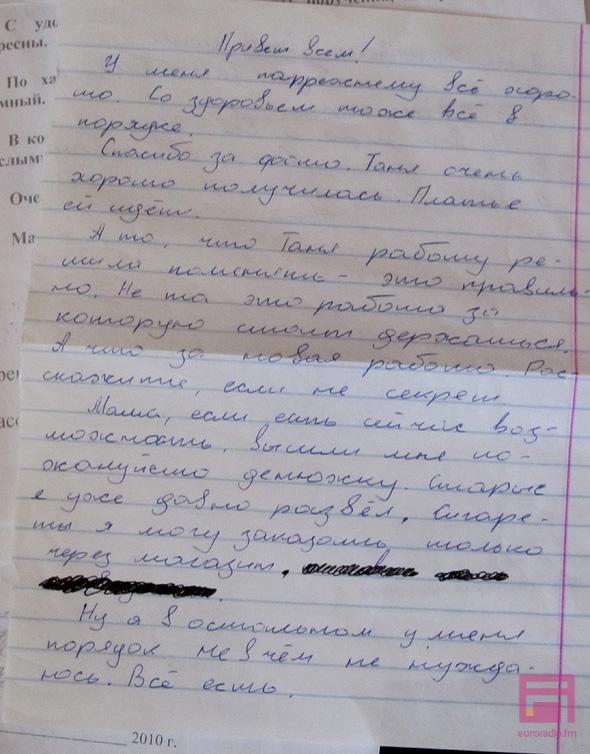 С удо
ресны.
По ха
мный.
В ко
слым
Оче
Ма
Привет всем!
У меня попрежнему всё хоро-
шо. Со здоровьем тоже всё в
порядке.
Спасибо за фото. Таня очень
хорошо получилась. Платье
ей идёт.
А то, что Таня работу ре-
шила поменять - это правиль-
но. Не та это работа за
которую стоит держаться.
А что за новая работа Рас-
скажите, если не секрет.
Мама, если есть сейчас воз-
можность, вышли мне по-
жалуйста денюжку. Старые
я уже давно развёл. Сигаре-
ты я могу заказать только
через магазин.
Ну а в остальном у меня
порядок не в чём не нужда-
юсь. Всё есть.
2010 г.
euroradio.fm